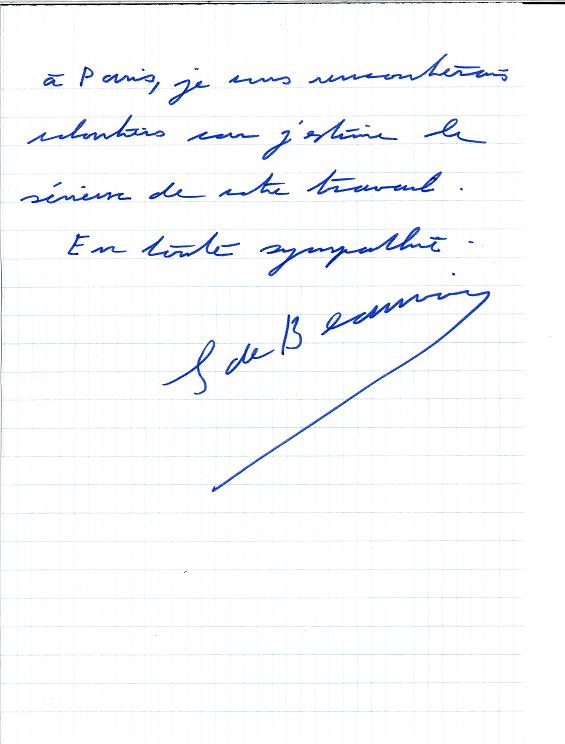 à Paris, je vous rencontrerais
volontiers car j'estime le
sérieux de votre travail.
En toute sympathie.
S de Beauvoir